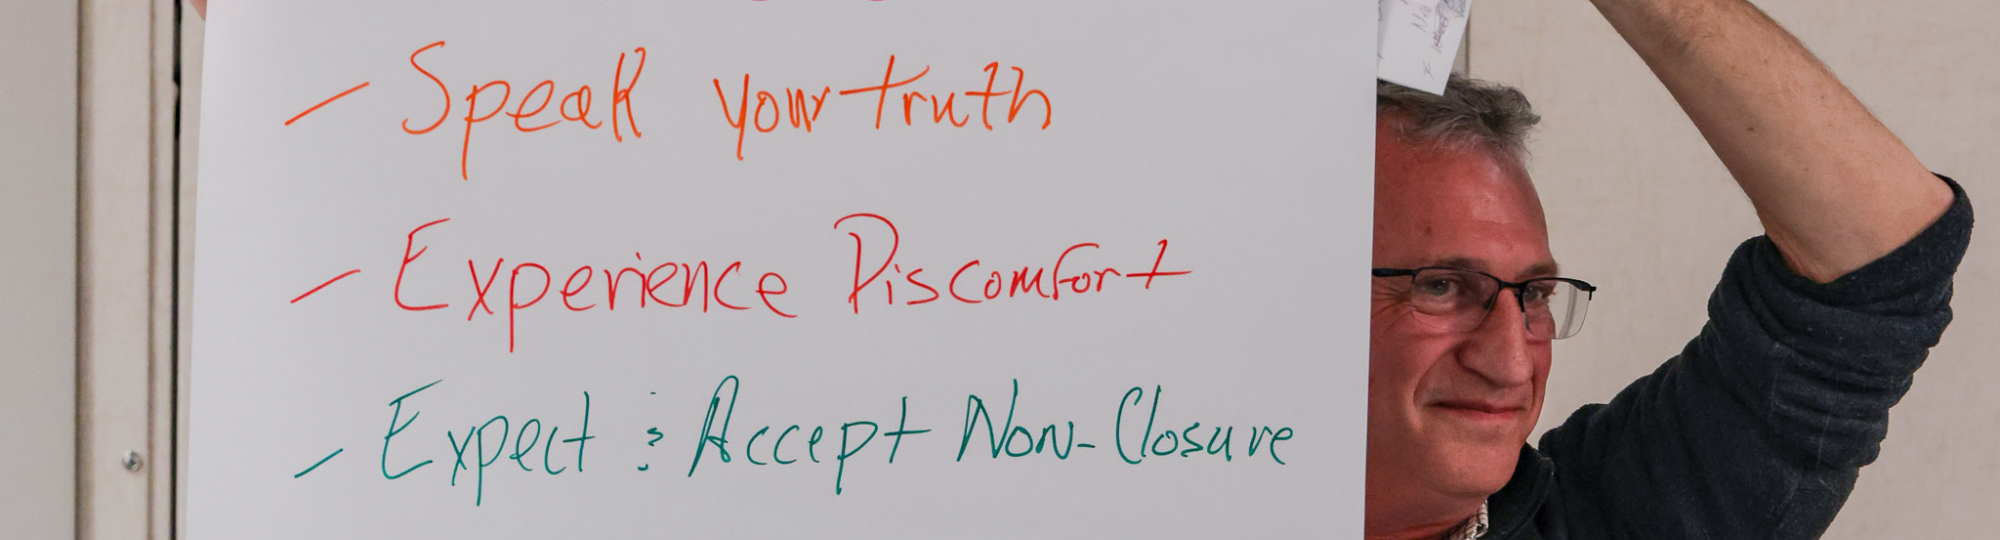 - Speak your truth
- Experience Discomfort
- Expect & Accept Non-Closure